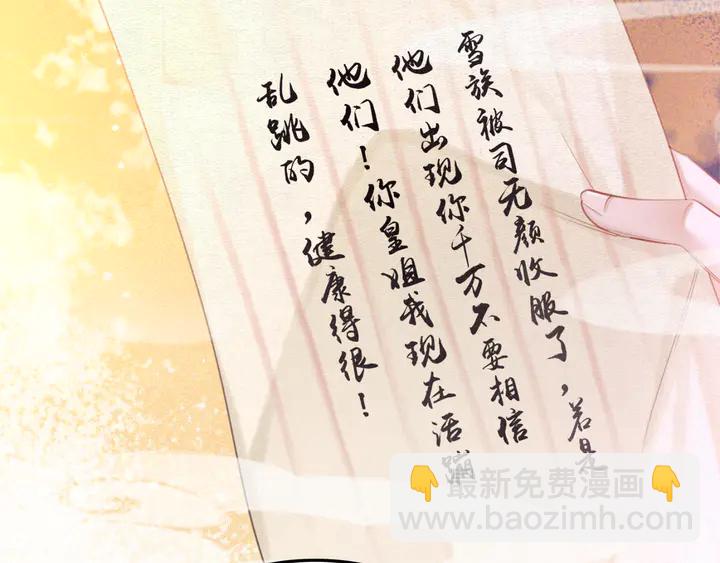 雪族被司无颜收服了，若是
他们出现你千万不要相信
他们！你皇姐我现在活蹦
乱跳的，健康得很！
👇最新免费漫画👇
www.baozimh.com